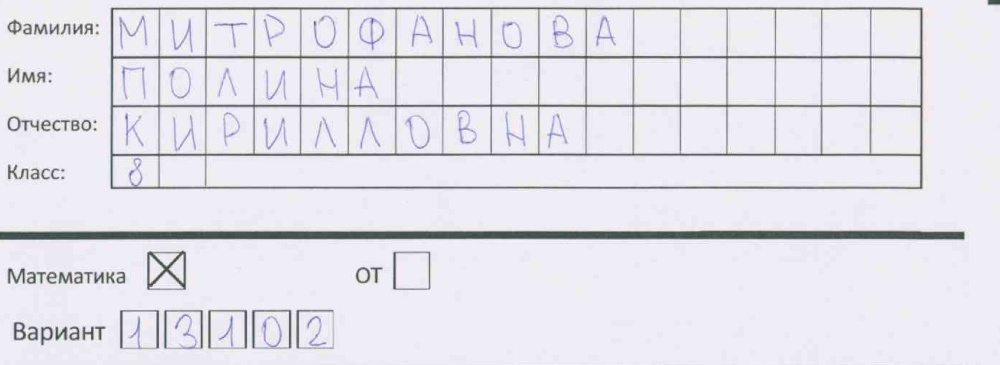 Фамилия: МИТРОФАНОВА
Имя: ПОЛИНА
Отчество: КИРИЛЛОВНА
Класс: 8
Математика ☒ ОТ ☐
Вариант 13102